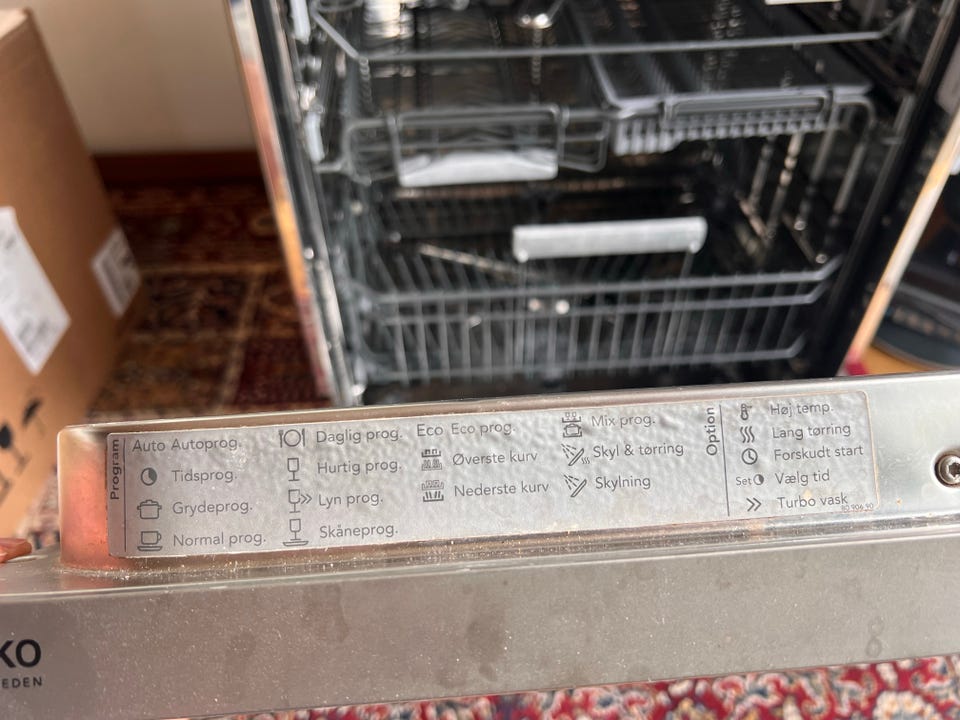 Program
Auto Autoprog.
Tidsprog.
Grydeprog.
Normal prog.
Daglig prog.
Hurtig prog.
Lyn prog.
Skåneprog.
Eco Eco prog.
Øverste kurv
Nederste kurv
Mix prog.
Skyl & tørring
Skylning
Option
Høj temp.
Lang tørring
Forskudt start
Set Vælg tid
Turbo vask
KO
EDEN